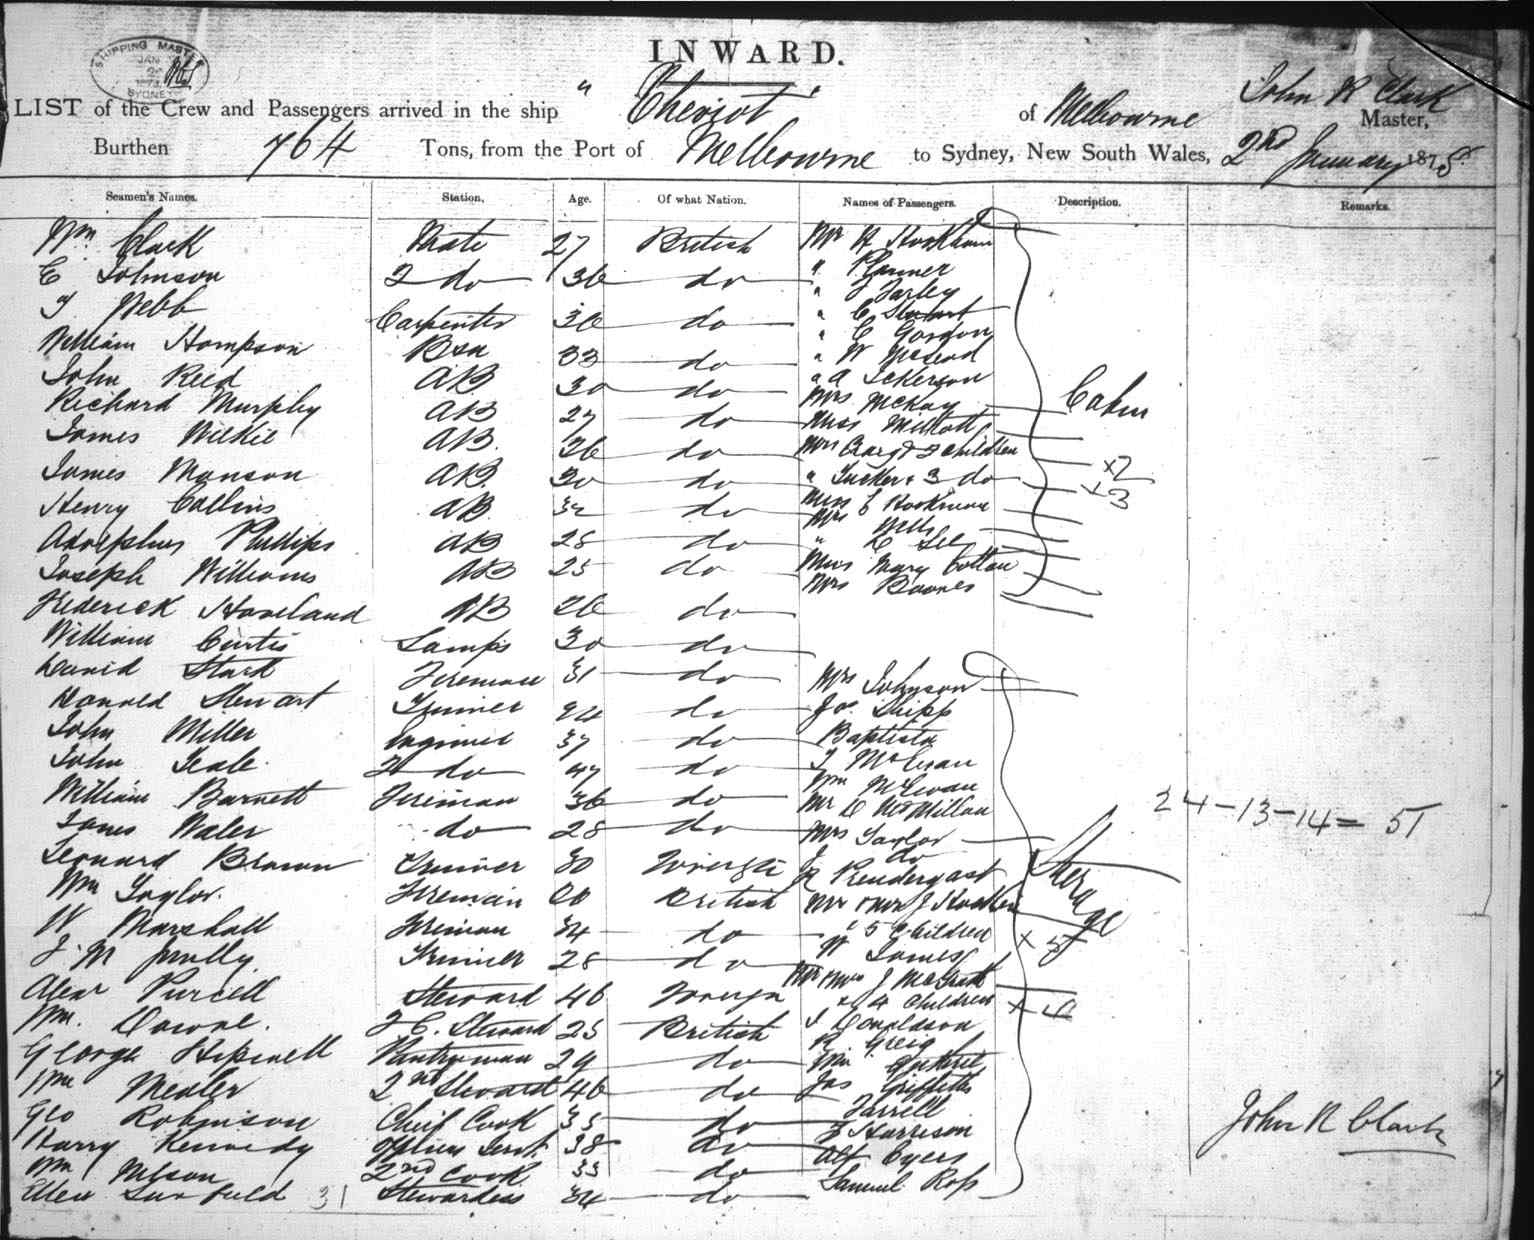 SHIPPING MASTER
JAN
SYDNEY
INWARD.
LIST of the Crew and Passengers arrived in the ship "Cheviot" of Melbourne John R Clark Master,
Burthen 764 Tons, from the Port of Melbourne to Sydney, New South Wales, 2nd January 1878
Seamen's Names. Station. Age. Of what Nation. Names of Passengers. Description. Remarks.
Wm Clark Mate 27 British Mr H Hookham
E Johnson 2 do 36 do "
T Webb Carpenter 30 do " T Farley
" C Stuart
William Hompson Bsn 33 do " C Gordon
" W McLeod
John Reed AB 30 do " A
Richard Murphy AB 27 do Mrs McKay
James Wilkie AB 26 do Miss
Mrs & 2 children
James Manson AB 30 do " Tucker & 3 do
Cabin
x2
x3
Henry Collins AB 32 do Miss E
Mrs Mills
Adolphus Phillips AB 28 do "
Joseph Williams AB 25 do Miss Mary Cotton
Mrs Barnes
Frederick Haveland AB 26 do
William Curtis Lamps 30 do
David Stark Fireman 31 do Mrs Johnson
Donald Stewart Trimmer 24 do Jos Shipp
John Miller Engineer 37 do Baptista
John Neale 2 do 47 do T McLean
Wm McEwan
William Barnett Fireman 36 do Mr D McMillan
24-13-14= 51
James Waler do 28 do Mrs Taylor
J do
Leonard Brown Trimmer 30 Foreign R Prendergast
Steerage
Wm Taylor. Fireman 20 British Mr & Mrs J
W Marshall Fireman 34 do & 5 Children x 5
J. M Trimmer 28 do W James
Alexr Purcell Steward 46 Foreign Mr & Mrs J McGrath
& 4 Children x 4
Wm. Downe. F C. Steward 25 British J Donaldson
R Greig
George Pantryman 29 do
Wm Medler 2nd Steward 46 do Jas Griffiths
Geo Robinson Chief Cook 35 do Farrell
John R Clark
Harry Kennedy Officers Servt 38 do J Harrison
Wm Nelson 2nd Cook 33 do Alf Byers
Ellen 31 Stewardess 34 do Samuel Ross